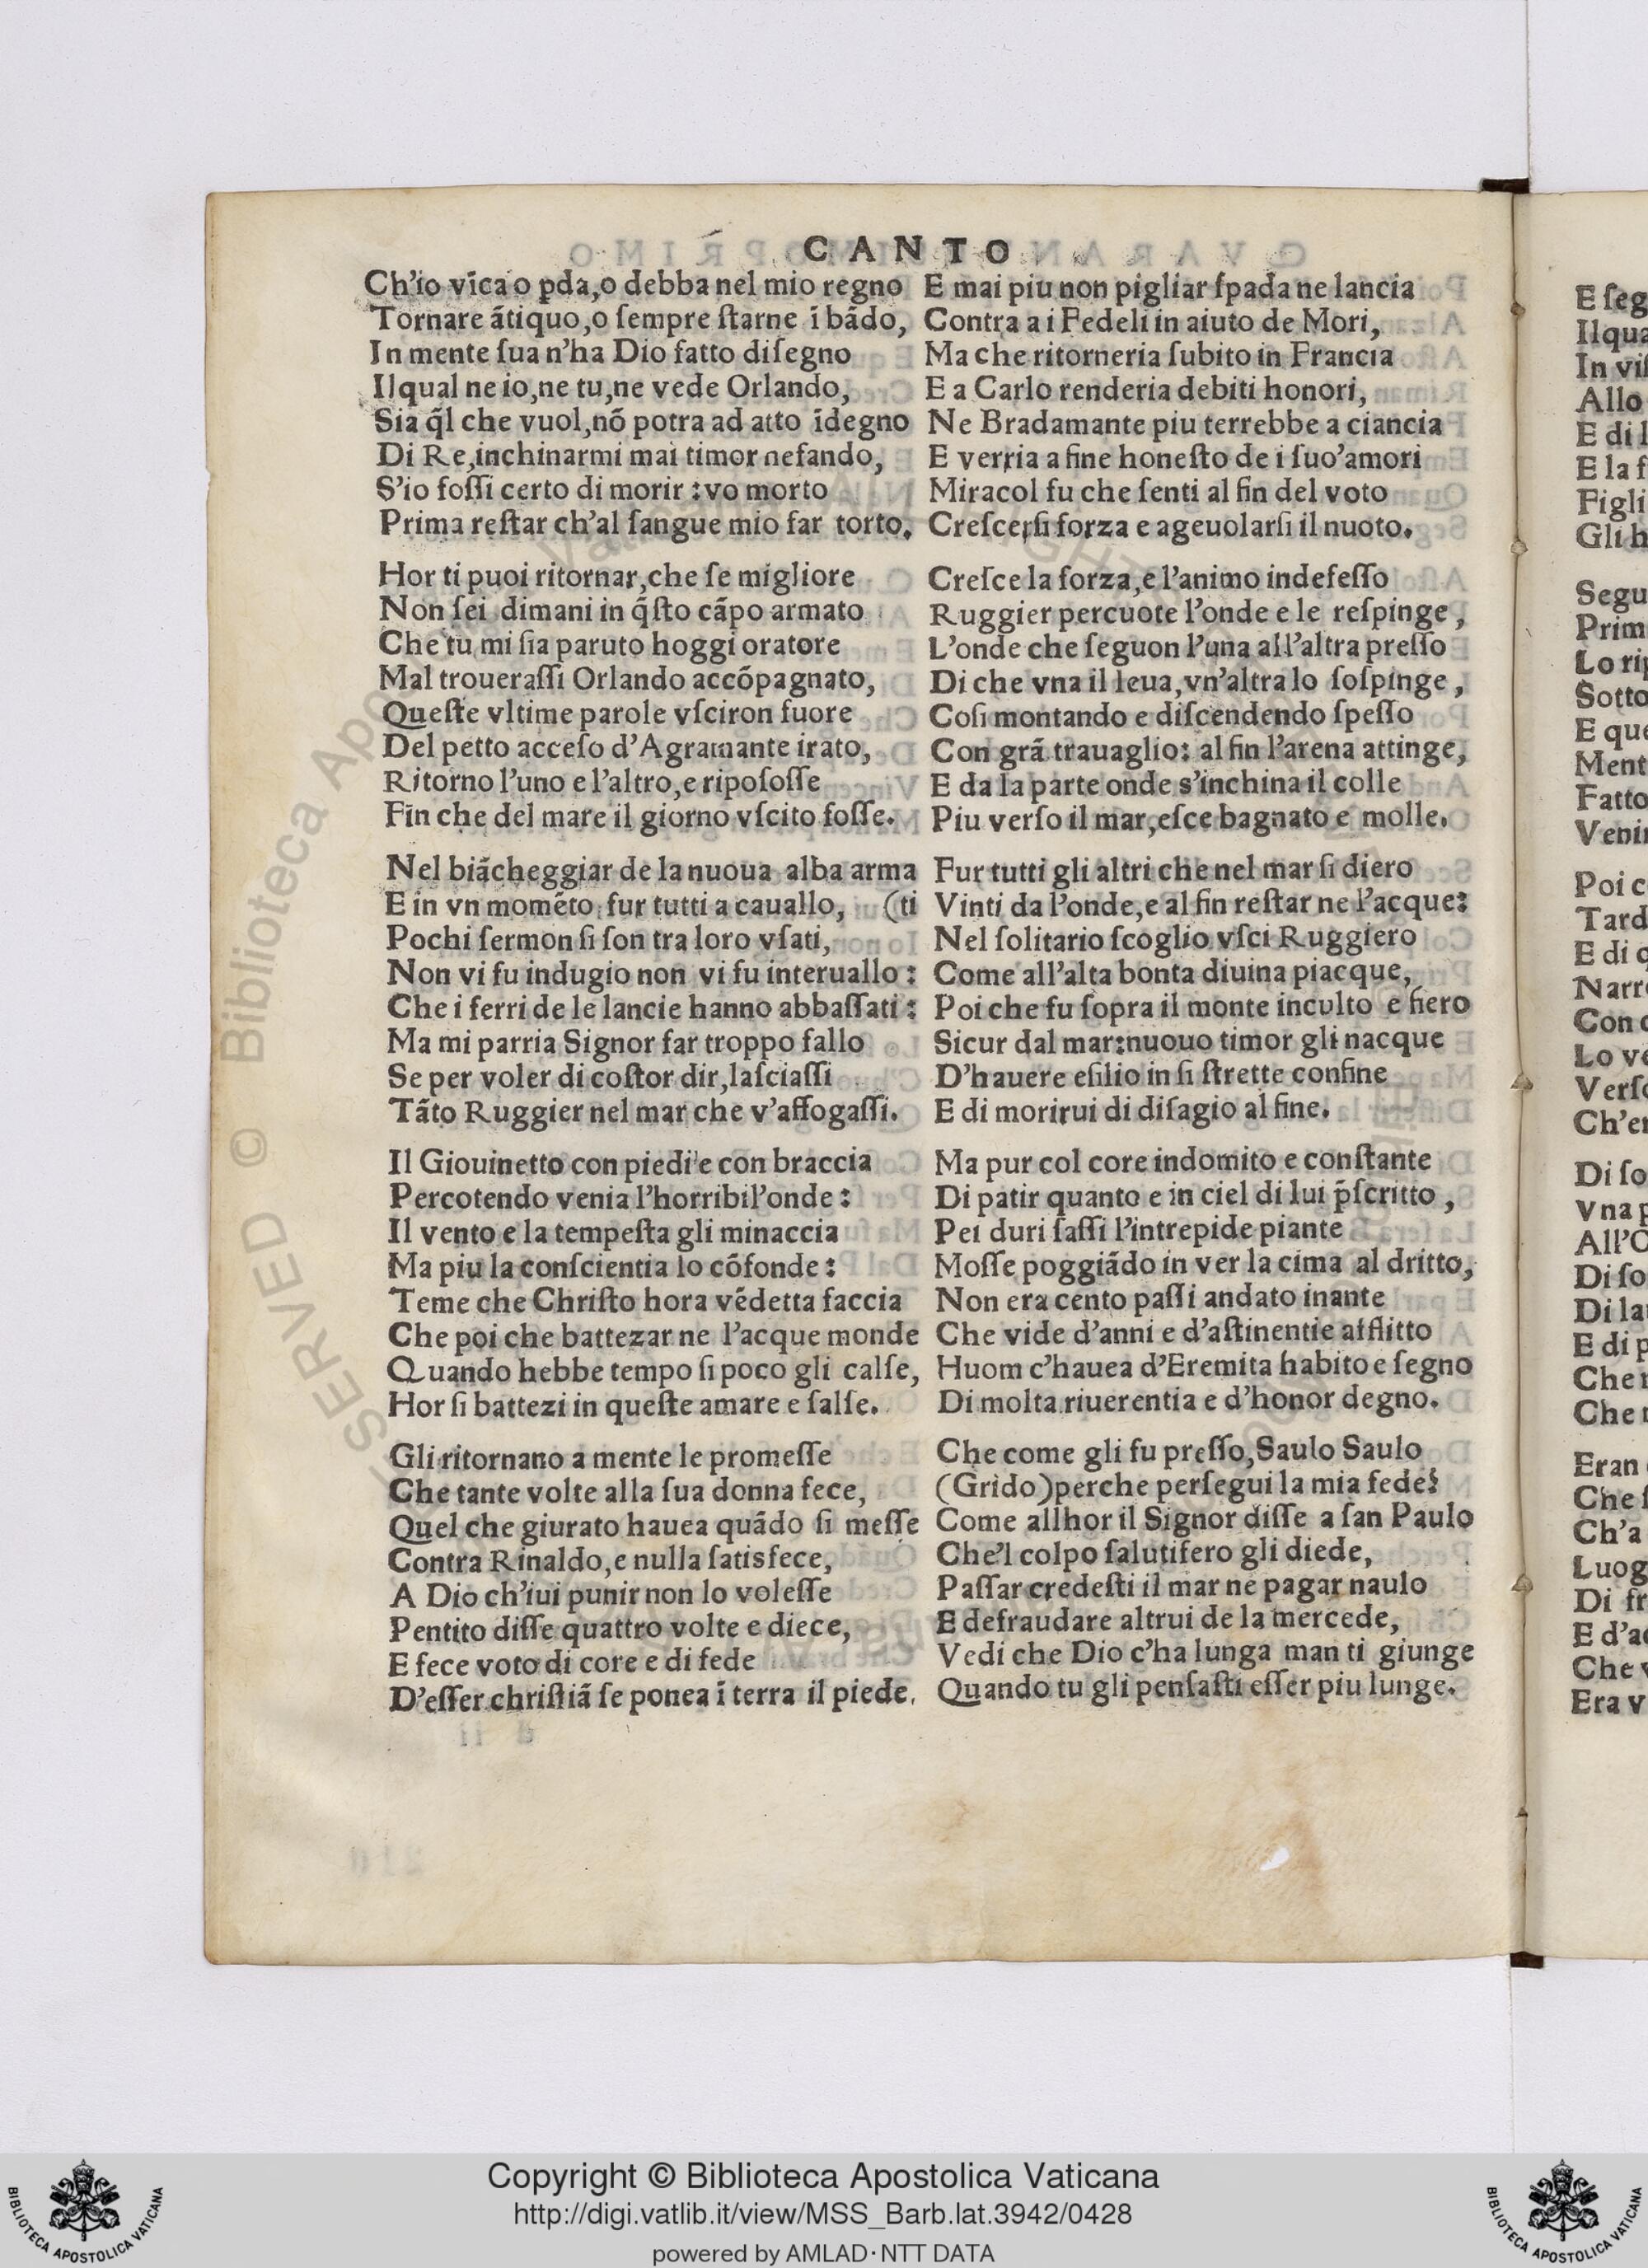 CANTO
Ch'io vīca o p̱da,o debba nel mio regno
Tornare ãtiquo,o ſempre ſtarne ī bãdo,
In mente ſua n'ha Dio fatto diſegno
Ilqual ne io,ne tu,ne vede Orlando,
Sia q̃l che vuol,nõ potra ad atto īdegno
Di Re,inchinarmi mai timor nefando,
S'io foſſi certo di morir :vo morto
Prima reſtar ch'al ſangue mio far torto.
Hor ti puoi ritornar,che ſe migliore
Non ſei dimani in q̃ſto cãpo armato
Che tu mi ſia paruto hoggi oratore
Mal troueraſſi Orlando accõpagnato,
Queſte vltime parole vſciron fuore
Del petto acceſo d'Agramante irato,
Ritorno l'uno e l'altro,e ripoſoſſe
Fin che del mare il giorno vſcito foſſe.
Nel biãcheggiar de la nuoua alba arma
E in vn momẽto fur tutti a cauallo, (ti
Pochi ſermon ſi ſon tra loro vſati,
Non vi fu indugio non vi fu interuallo :
Che i ferri de le lancie hanno abbaſſati :
Ma mi parria Signor far troppo fallo
Se per voler di coſtor dir,laſciaſſi
Tãto Ruggier nel mar che v'affogaſſi.
Il Giouinetto con piedi e con braccia
Percotendo venia l'horribil'onde :
Il vento e la tempeſta gli minaccia
Ma piu la conſcientia lo cõfonde :
Teme che Chriſto hora vẽdetta faccia
Che poi che battezar ne l'acque monde
Quando hebbe tempo ſi poco gli calſe,
Hor ſi battezi in queſte amare e ſalſe.
Gli ritornano a mente le promeſſe
Che tante volte alla ſua donna fece,
Quel che giurato hauea quãdo ſi meſſe
Contra Rinaldo,e nulla ſatisfece,
A Dio ch'iui punir non lo voleſſe
Pentito diſſe quattro volte e diece,
E fece voto di core e di fede
D'eſſer chriſtiã ſe ponea ī terra il piede.
E mai piu non pigliar ſpada ne lancia
Contra a i Fedeli in aiuto de Mori,
Ma che ritorneria ſubito in Francia
E a Carlo renderia debiti honori,
Ne Bradamante piu terrebbe a ciancia
E verria a fine honeſto de i ſuo'amori
Miracol fu che ſenti al fin del voto
Creſcerſi forza e ageuolarſi il nuoto.
Creſce la forza,e l'animo indefeſſo
Ruggier percuote l'onde e le reſpinge,
L'onde che ſeguon l'una all'altra preſſo
Di che vna il leua,vn'altra lo ſoſpinge,
Coſi montando e diſcendendo ſpeſſo
Con grã trauaglio: al fin l'arena attinge,
E da la parte onde s'inchina il colle
Piu verſo il mar,eſce bagnato e molle.
Fur tutti gli altri che nel mar ſi diero
Vinti da l'onde,e al fin reſtar ne l'acque:
Nel ſolitario ſcoglio vſci Ruggiero
Come all'alta bonta diuina piacque,
Poi che fu ſopra il monte inculto e fiero
Sicur dal mar:nuouo timor gli nacque
D'hauere eſilio in ſi ſtrette confine
E di morirui di diſagio al fine.
Ma pur col core indomito e conſtante
Di patir quanto e in ciel di lui p̃ſcritto,
Pei duri ſaſſi l'intrepide piante
Moſſe poggiãdo in ver la cima al dritto,
Non era cento paſſi andato inante
Che vide d'anni e d'aſtinentie afflitto
Huom c'hauea d'Eremita habito e ſegno
Di molta riuerentia e d'honor degno.
Che come gli fu preſſo,Saulo Saulo
(Grido)perche perſegui la mia fede?
Come allhor il Signor diſſe a ſan Paulo
Che'l colpo ſalutifero gli diede,
Paſſar credeſti il mar ne pagar naulo
E defraudare altrui de la mercede,
Vedi che Dio c'ha lunga man ti giunge
Quando tu gli penſaſti eſſer piu lunge.
E ſeg
Ilqua
In viſ
Allo
E di l
E la f
Figli
Gli h
Segu
Prim
Lo rip
Sotto
E que
Ment
Fatto
Venir
Poi c
Tard
E di q
Narr
Con
Lo ve
Verſo
Ch'er
Di ſo
Vna p
All'O
Di ſo
Di la
E di p
Che
Che
Eran
Che ſ
Ch'a
Luog
Di fr
E d'ac
Che v
Era v
SERVED © Biblioteca Apo
Copyright © Biblioteca Apostolica Vaticana
http://digi.vatlib.it/view/MSS_Barb.lat.3942/0428
powered by AMLAD·NTT DATA
BIBLIOTECA APOSTOLICA VATICANA
BIBLIOTECA APOSTOLICA VATICANA